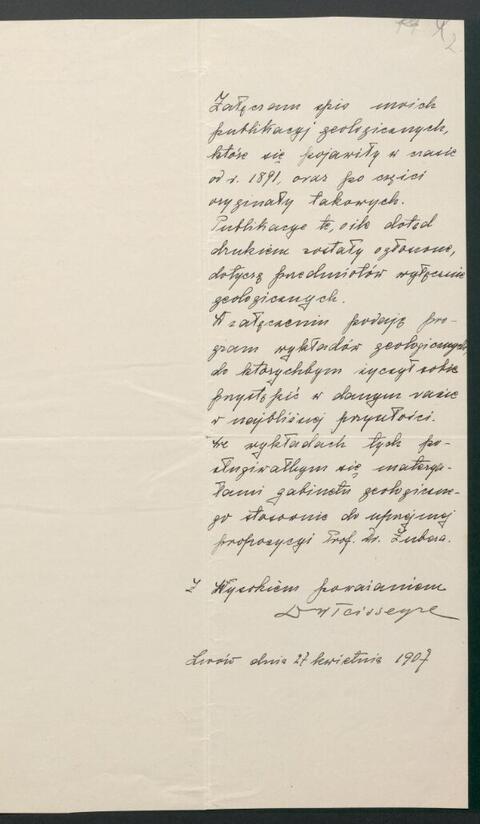 2
Załączam spis moich
publikacyj geologicznych,
które się pojawiły w czasie
od r. 1891, oraz po części
oryginały takowych.
Publikacye te, o ile dotąd
drukiem zostały ogłoszone,
dotyczą przedmiotów wyłącznie
geologicznych.
W załączeniu podaję pro-
gram wykładów geologicznych,
do którychbym życzył sobie
przystąpić w danym razie
w najbliższej przyszłości.
We wykładach tych po-
sługiwałbym się materya-
łami gabinetu geologiczne-
go stosownie do uprzejmej
propozycyi Prof. Dr. Zubera.
Z Wysokiem poważaniem
Dr W Teisseyre
Lwów dnia 27 kwietnia 1907